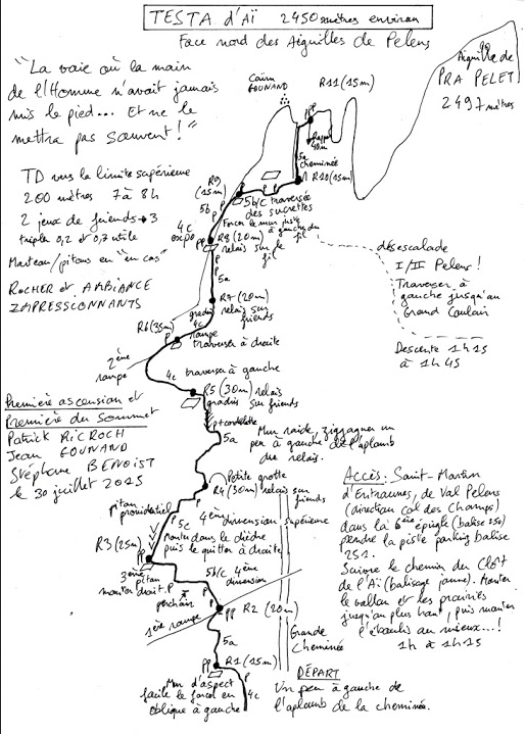 TESTA d'AÏ 2450 mètres environ
Face nord des Aiguilles de Pelens
"La voie où la main
de l'Homme n'avait jamais
mis le pied... Et ne le
mettra pas souvent!"
Aiguille de
PRA PELET
2497 mètres
Cairn
GOUNAND
R11 (15m)
Rappel
5a
cheminée
R10 (15m)
TD vers la limite supérieure
200 mètres 7 à 8h
2 jeux de friends → 3
triple 0,2 et 0,7 utile
Marteau/pitons en "en cas"
ROCHER et AMBIANCE
ZAPRESSIONNANTS
R9
(15m)
5b
5b/c traversée
des sucrettes
4c
expo
R8 (20m)
relais sur le
fil
5a
désescalade
I/II Pelens!
Traverser à
gauche jusqu'au
Grand Couloir
Descente 1h15
à 1h45
R7 (20m)
relais sur
friends
gradins
4c
rampe
traverser à droite
R6 (35m)
2ème
rampe
4c traverser à gauche
R5 (30m) relais
gradins sur friends
5a
Mur raide, zigzaguer un
peu à gauche de l'aplomb
du relais.
Première ascension et
Première du Sommet
Patrick RICROCH
Jean GOUNAND
Stéphane BENOIST
le 30 juillet 2025
Petite grotte
R4 (30m) relais sur
friends
piton
providentiel
5c 4ème dimension supérieure
Monter dans le dièdre
puis le quitter à droite
R3 (25m)
3ème
piton
monter droit.
5b/c 4ème
dimension
1ère rampe
PP R2 (20m)
5a
Grande
Cheminée
PP R1 (15m)
Mur d'aspect
facile le forcer en
oblique à gauche
4c
Accès: Saint-Martin
d'Entraunes, de Val Pelens
(direction col des Champs)
dans la 6ème épingle (balise 250)
prendre la piste parking balise
251.
Suivre le chemin du Clot
de l'Aï (balisage jaune). Monter
le vallon et les prairies
jusqu'au plus haut, puis monter
l'éboulis au mieux...!
1h à 1h15
DÉPART
Un peu à gauche de
l'aplomb de la cheminée.